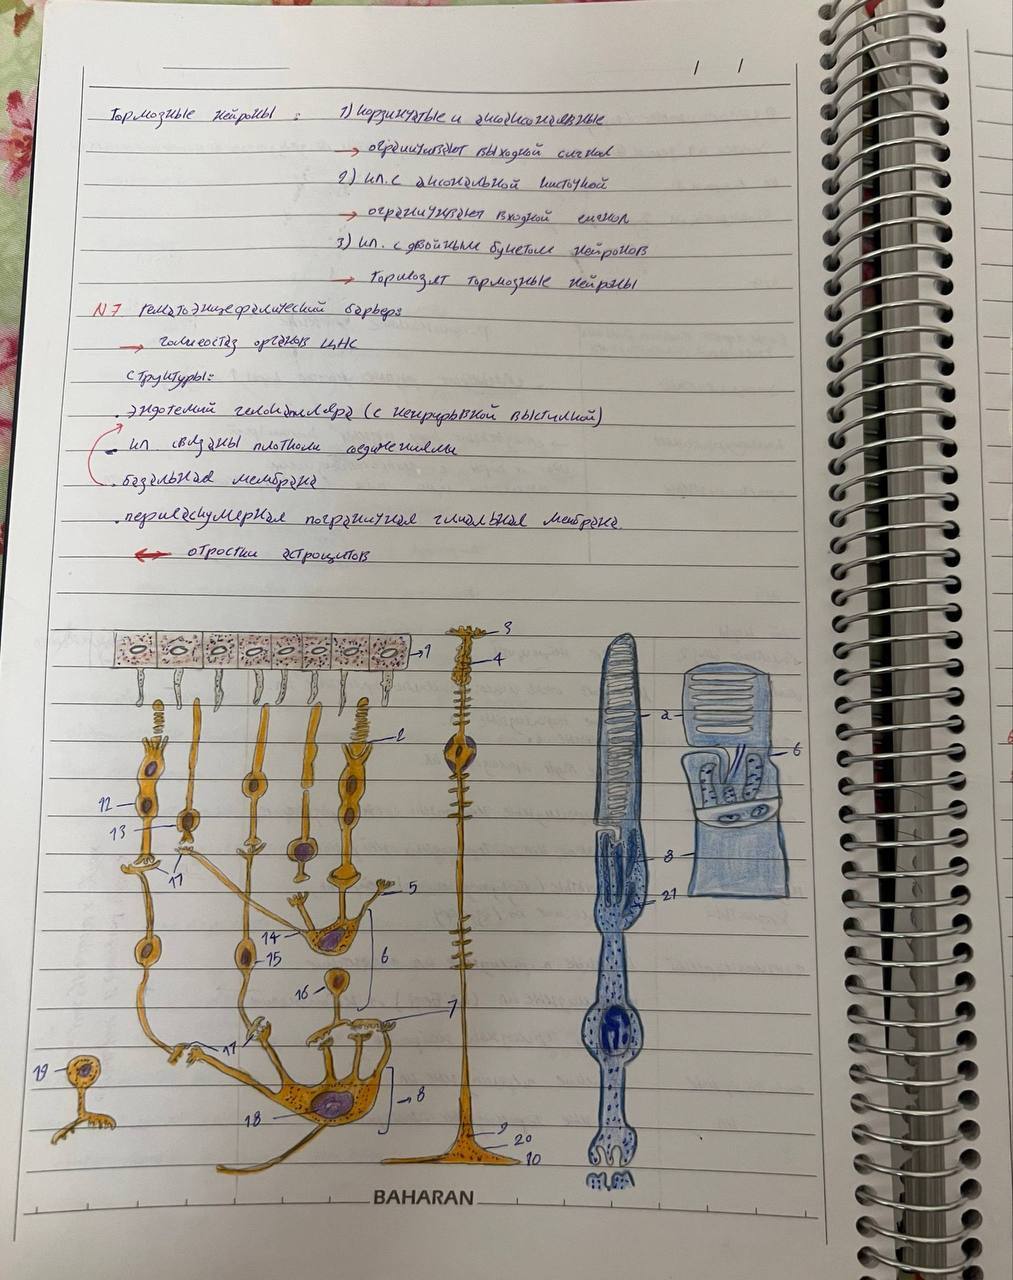 Тормозные нейроны : 1) корзинчатые и аксоаксональные
→ ограничивают выходной сигнал
2) кл. с аксональной кисточкой
→ ограничивают входной сигнал
3) кл. с двойным букетом нейронов
→ тормозят тормозные нейроны
N7 гематоэнцефалический барьер:
→ гомеостаз органов ЦНС
структуры:
. эндотелий гемокапилляра (с непрерывной выстилкой)
- кл. связаны плотными соединениями
. базальная мембрана
. периваскулярная пограничная глиальная мембрана
↔ отростки астроцитов
3
1
4
2
2
6
12
13
8
17
5
21
14
6
15
16
7
17
19
8
18
9
20
10
BAHARAN